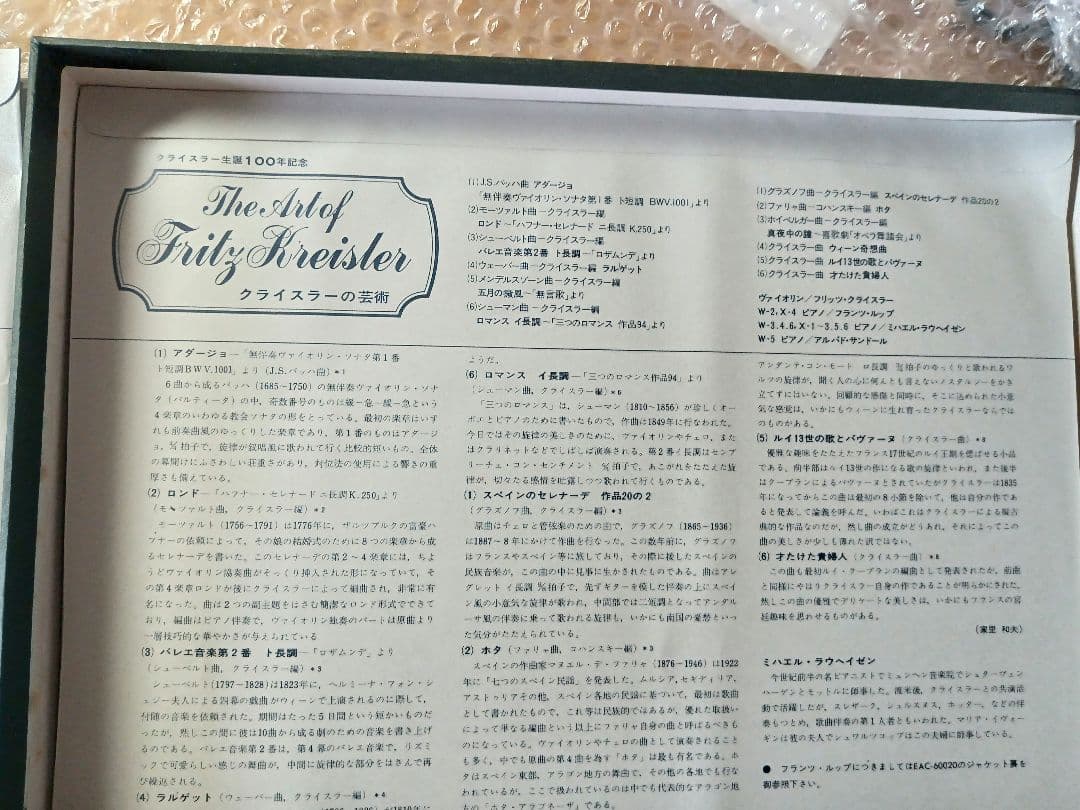 クライスラー生誕100年記念
The Art of
Fritz Kreisler
クライスラーの芸術
(1)J.S.バッハ曲 アダージョ
「無伴奏ヴァイオリン・ソナタ第1番 ト短調 BWV.1001」より
(2)モーツァルト曲—クライスラー編
ロンド〜「ハフナー・セレナード ニ長調 K.250」より
(3)シューベルト曲—クライスラー編
バレエ音楽第2番 ト長調〜「ロザムンデ」より
(4)ウェーバー曲—クライスラー編 ラルゲット
(5)メンデルスゾーン曲—クライスラー編
五月の微風〜「無言歌」より
(6)シューマン曲—クライスラー編
ロマンス イ長調〜「三つのロマンス 作品94」より
(1)グラズノフ曲—クライスラー編 スペインのセレナーデ 作品20の2
(2)ファリャ曲—コハンスキー編 ホタ
(3)ホイベルガー曲—クライスラー編
真夜中の鐘〜喜歌劇「オペラ舞踏会」より
(4)クライスラー曲 ウィーン奇想曲
(5)クライスラー曲 ルイ13世の歌とパヴァーヌ
(6)クライスラー曲 才たけた貴婦人
ヴァイオリン/フリッツ・クライスラー
W-2,X-4 ピアノ/フランツ・ルップ
W-3.4.6,X-1〜3.5.6 ピアノ/ミハエル・ラウヘイゼン
W-5 ピアノ/アルパド・サンドール
(1) アダージョ—「無伴奏ヴァイオリン・ソナタ第1番
ト短調BWV.1001」より (J.S.バッハ曲) *1
6曲から成るバッハ (1685〜1750) の無伴奏ヴァイオリン・ソナ
タ (パルティータ) の中、奇数番号のものは緩—急—緩—急という
4楽章のいわゆる教会ソナタの形をとっている。最初の楽章はいず
れも前奏曲風のゆっくりした楽章であり、第1番のものはアダージ
ョ、4/4拍子で、旋律が叙唱風に歌われて行く比較的短いもの。全体
の幕開けにふさわしい荘重さがあり、対位法の使用による響きの重
厚さも備えている。
(2) ロンド—「ハフナー・セレナード ニ長調K.250」より
(モーツァルト曲、クライスラー編) *2
モーツァルト (1756〜1791) は1776年に、ザルツブルクの富豪ハフ
ナーの依頼によって、その娘の結婚式のために8つの楽章から成
るセレナーデを書いた。このセレナーデの第2〜4楽章には、ちょ
うどヴァイオリン協奏曲がそっくり挿入された形になっていて、そ
の第4楽章ロンドが後にクライスラーによって編曲され、非常に有
名になった。曲は2つの副主題をはさむ簡潔なロンド形式でできて
おり、編曲はピアノ伴奏で、ヴァイオリン独奏のパートは原曲より
一層技巧的な華やかさが与えられている
(3) バレエ音楽第2番 ト長調—「ロザムンデ」より
(シューベルト曲、クライスラー編) *3
シューベルト(1797〜1828)は1823年に、ヘルミーナ・フォン・シ
ェジー夫人による四幕の戯曲がウィーンで上演されるのに際して、
付随の音楽を依頼された。期間はたった5日間という短かいものだ
ったが、然しこの間に彼は10曲から成る劇のための音楽を書き上げ
るのである。バレエ音楽第2番は、第4幕のバレエ音楽で、リズミ
ックで可愛らしい感じの舞曲が、中間に旋律的な部分をはさんで再
び繰返される。
(4) ラルゲット (ウェーバー曲、クライスラー編) *4
ようだ。
(6) ロマンス イ長調—「三つのロマンス作品94」より
(シューマン曲、クライスラー編) *6
「三つのロマンス」は、シューマン (1810〜1856) が珍しくオー
ボエとピアノのために書いたもので、作曲は1849年に行なわれた。
今日ではその旋律の美しさのために、ヴァイオリンやチェロ、また
はクラリネットなどでしばしば演奏される。第2番イ長調はセンプ
リーチェ・コン・センチメント 2/4拍子で、あこがれをたたえた旋
律が、切々たる感情を吐露しつつ歌われて行くものである。
(1) スペインのセレナーデ 作品20の2
(グラズノフ曲、クライスラー編) *3
原曲はチェロと管弦楽のための曲で、グラズノフ (1865-1936)
は1887〜8年にかけて作曲を行なった。この数年前に、グラズノフ
はフランスやスペイン等に旅しており、その際に接したスペインの
民族音楽が、この曲の中に見事に生かされたものである。曲はアレ
グレット イ長調 6/8拍子で、先ずギターを模した伴奏の上にスペイ
ン風の小意気な旋律が歌われ、中間部では二短調となってアンダル
ーサ風の伴奏に乗って歌われる旋律も、いかにも南国の憂愁といっ
た気分がたたえられている。
(2) ホタ (ファリャ曲、コハンスキー編) *3
スペインの作曲家マヌエル・デ・ファリャ (1876-1946) は1922
年に「七つのスペイン民謡」を発表した。ムルシア,セギディリア,
アストゥリアその他、スペイン各地の民謡に基づいて、最初は歌曲
として書かれたもので、これ等は民族的ではあるが、優れた取扱い
によって単なる編曲という以上にファリャ自身の曲と呼ばるべきも
のになっている。ヴァイオリンやチェロの曲として演奏されること
も多く、中でも原曲の第4曲を為す「ホタ」は最も有名である。ホ
タはスペイン東部、アラゴン地方の舞曲で、その他の各地でも行な
われているが、ここで扱われているのは中でも代表的なアラゴン地
方の「ホタ・アラフネーザ」である。
アンダンテ・コン・モート ロ長調 3/4拍子のゆっくりと歌われるワ
ルツの旋律が、聞く人の心に何んとも言えないノスタルジーをかき
立てずにはいない。回顧的な感傷と同時に、そこに込められた小意
気な感覚は、いかにもウィーンに生れ育ったクライスラーならでは
のものがある。
(5) ルイ13世の歌とパヴァーヌ (クライスラー曲) *8
優雅な趣味をたたえたフランス17世紀のルイ王朝を偲ばせる小品
である。前半部はルイ13世の作になる歌の旋律といわれ、また後半
はクープランによるパヴァーヌとされていたがクライスラーは1835
年になってからこの曲は最初の8小節を除いて、他は自分の作であ
ると発表して論義を呼んだ。いわばこれはクライスラーによる擬古
典的な作品なのだが、然し曲の成立がどうあれ、それによってこの
曲の美しさが少しも薄れた訳ではない。
(6) 才たけた貴婦人 (クライスラー曲) *8
この曲も最初ルイ・クープランの編曲として発表されたが、前曲
と同様にやはりクライスラー自身の作であることが明らかにされた。
然しこの曲の優雅でデリケートな美しさは、いかにもフランスの宮
廷趣味を思わせるものがある。
(家里 和夫)
ミハエル・ラウヘイゼン
今世紀前半の名ピアニストでミュンヘン音楽院でシュターヴェン
ハーゲンとモットルに師事した。渡米後、クライスラーとの共演活
動で活躍したが、スレザーク、シュルスヌス、ホッター、などの伴
奏もつとめ、歌曲伴奏の第1人者ともいわれた。マリア・イヴォー
ギンは彼の夫人でシュワルツコップはこの夫婦に師事している。
● フランツ・ルップにつきましてはEAC-60020のジャケット裏を
御参照下さい。